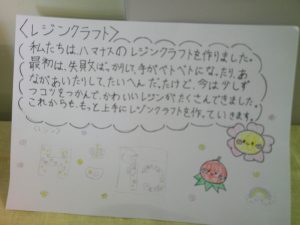 〈レジンクラフト〉
私たちは、ハマナスのレジンクラフトを作りました。
最初は、失敗ばっかりして、手がベトベトになったり、あ
ながあいたりして、たいへんだったけど、今は少しず
つコツをつかんで、かわいいレジンがたくさんできました。
これからも、もっと上手にレジンクラフトを作っていきます。